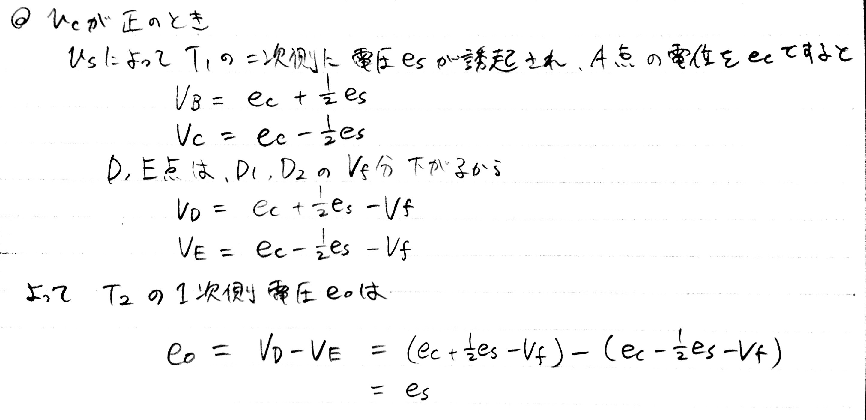 @ Vcが正のとき
Vsによって T₁の二次側に電圧esが誘起され、A点の電位をecですると
VB = ec + ½es
Vc = ec - ½es
D, E点は、D1, D2 の Vf分下がるから
VD = ec + ½es - Vf
VE = ec - ½es - Vf
よって T₂ の1次側電圧eoは
eo = VD - VE = (ec + ½es - Vf) - (ec - ½es - Vf)
= es